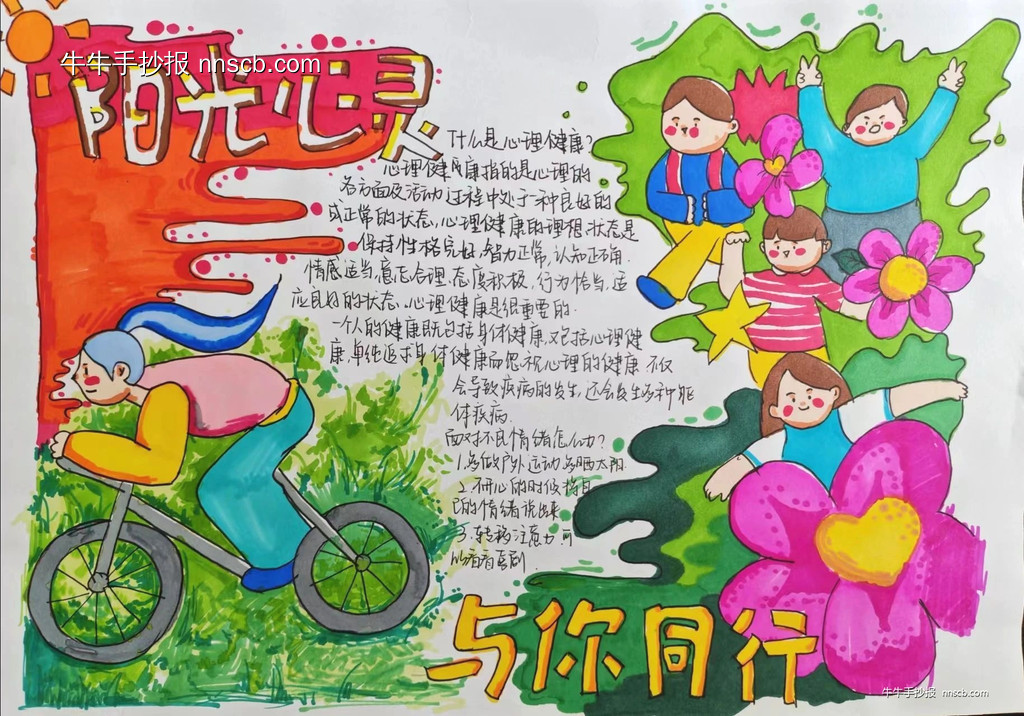 牛牛手抄报 nnscb.com
阳光心灵
什么是心理健康?
心理健康指的是心理的
各方面及活动过程中处于一种良好的
或正常的状态,心理健康的理想状态是
保持性格完好,智力正常,认知正确,
情感适当,意志合理,态度积极,行为恰当,适
应良好的状态、心理健康是很重要的.
一个人的健康既包括身体健康,又包括心理健
康,单纯追求身体健康而忽视心理的健康 不仅
会导致疾病的发生,还会发生多种躯
体疾病.
面对不良情绪怎么办?
1.多做户外运动多晒太阳.
2.不开心的时候将自
己的情绪说出来
3.转移注意力 可
与你同行
牛牛手抄报 nnscb.com